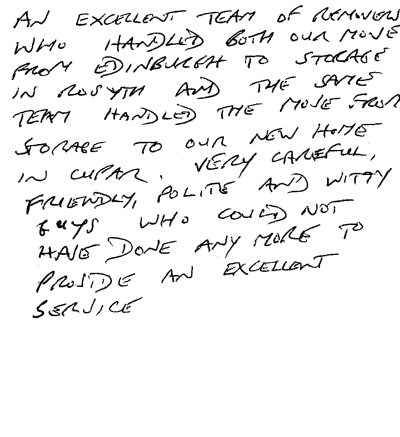 AN EXCELLENT TEAM OF REMOVERS
WHO HANDLED BOTH OUR MOVE
FROM EDINBURGH TO STORAGE
IN ROSYTH AND THE SAME
TEAM HANDLED THE MOVE FROM
STORAGE TO OUR NEW HOME
IN CUPAR. VERY CAREFUL,
FRIENDLY, POLITE AND WITTY
GUYS WHO COULD NOT
HAVE DONE ANY MORE TO
PROVIDE AN EXCELLENT
SERVICE